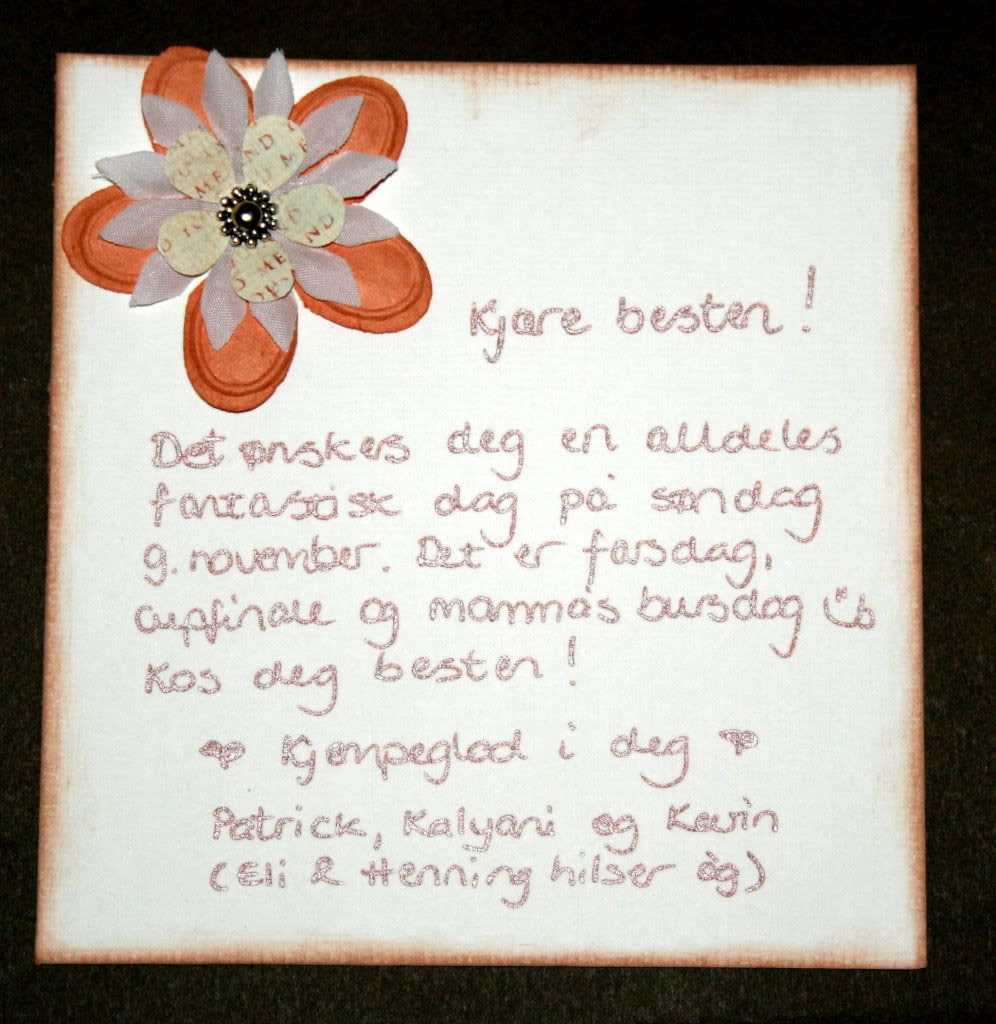 Kjære besten!
Det ønskers deg en alldeles
fantastisk dag på søndag
9. november. Det er farsdag,
cupfinale og mammas bursdag
Kos deg besten!
Kjempeglad i deg
Patrick, Kalyani og Kevin
(Eli & Henning hilser òg)
ME
ND
ME
ND
ME